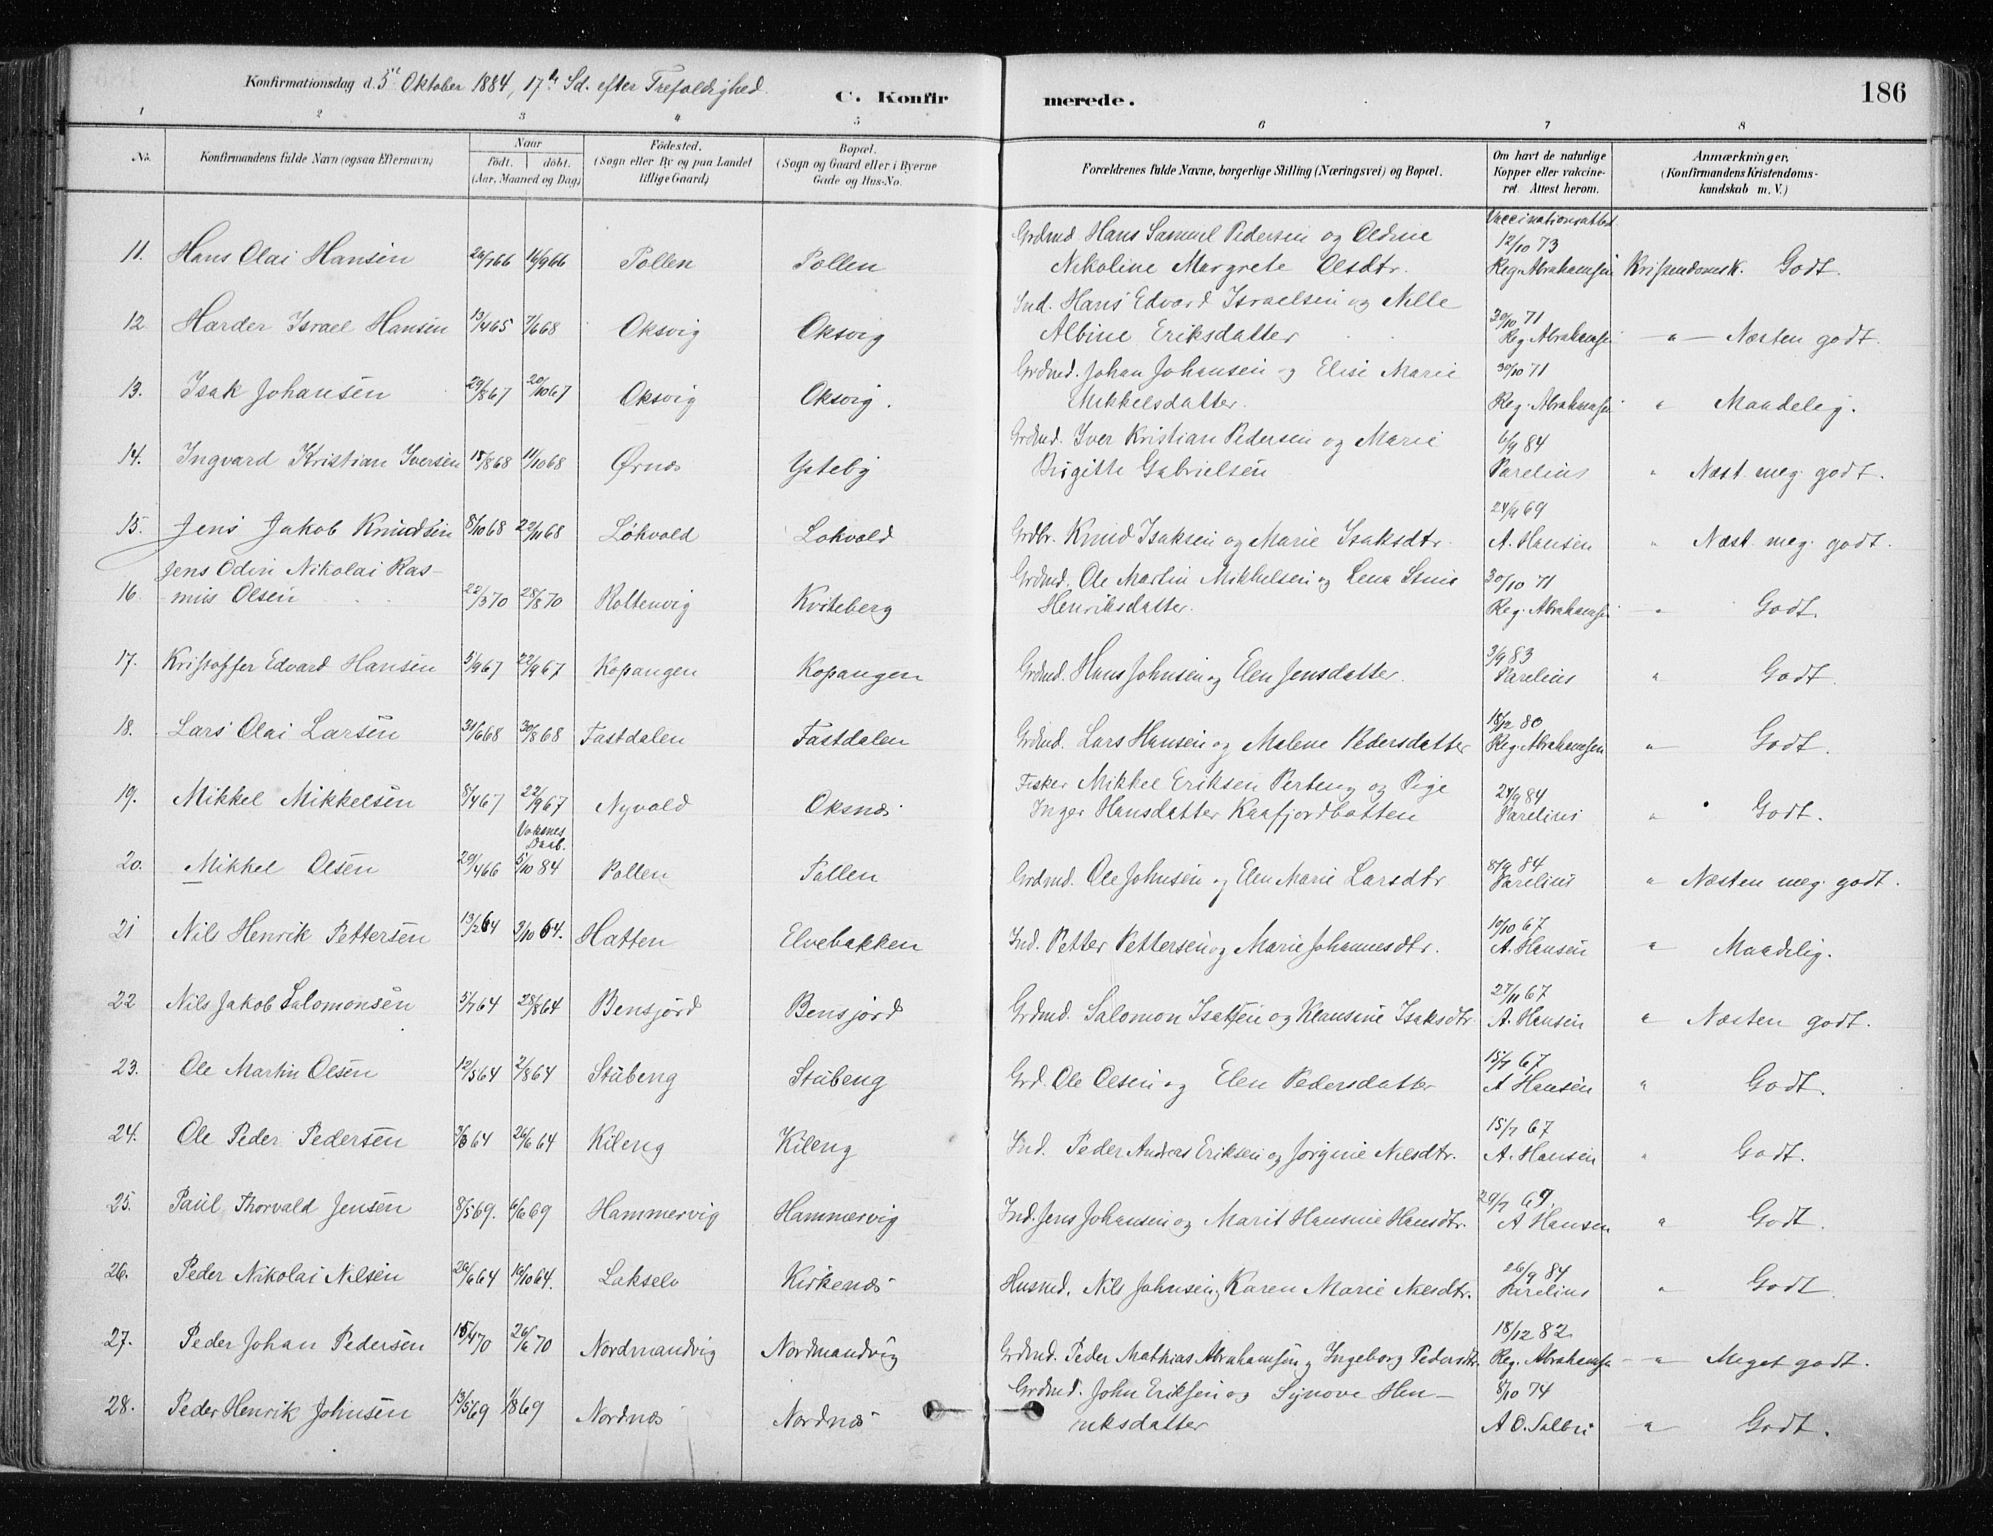 Konfirmationsdag d. 5te Oktober 1884, 17de Sd. efter Trefoldighed.
C. Konfirmerede.
186
1 2 3 4 5 6 7 8
No. Konfirmandens fulde Navn (ogsaa Efternavn) Naar født. døbt. (Aar, Maaned og Dag) Fødested. (Sogn eller By og paa Landet tillige Gaard) Bopæl. (Sogn og Gaard eller i Byerne Gade og Hus-No. Forældrenes fulde Navne, borgerlige Stilling (Næringsvei) og Bopæl. Om havt de naturlige Kopper eller vakcineret. Attest herom. Anmærkninger. (Konfirmandens Kristendomskundskab m. V.)
11. Hans Olai Hansen 26/7 66 16/9 66 Pollen Pollen Grdmd. Hans Samuel Pedersen og Oldine Nikoline Margrete Olsdtr. Vaccinationsattest 12/10 73 Reg. Abrahamsen Kristendomsk. Godt.
12. Harder Israel Hansen 13/4 65 7/6 68 Oksvig Oksvig Ind. Hans Edvard Israelsen og Nille Albine Eriksdatter 30/10 71 Reg. Abrahamsen " Næsten godt.
13. Isak Johansen 29/8 67 20/10 67 Oksvig Oksvig. Grdmd. Johan Johansen og Elise Marie Mikkelsdatter. 30/10 71 Reg. Abrahamsen " Maadelig.
14. Ingvard Kristian Iversen 15/8 68 11/10 68 Ørnæs Yteby Grdmd. Iver Kristian Pedersen og Marie Birgitte Gabrielsen 6/9 84 Parelius " Næst. meg. godt.
15. Jens Jakob Knudsen 8/10 68 22/11 68 Løkvold Lokvold Grdbr. Knud Isaksen og Marie Isaksdtr. 24/9 69 A. Hansen " Næst. meg. godt.
16. Jens Odin Nikolai Rasmus Olsen 22/3 70 28/8 70 Holtenvig Kviteberg Grdmd. Ole Martin Mikkelsen og Lena Stina Henriksdatter. 30/10 71 Reg. Abrahamsen " Godt.
17. Kristoffer Edvard Hansen 5/9 67 22/9 67 Kopangen Kopangen Grdmd. Hans Johnsen og Elen Jensdatter. 3/9 83 Parelius " Godt.
18. Lars Olai Larsen 31/6 68 30/8 68 Fastdalen Fastdalen Grdmd. Lars Hansen og Malene Pedersdatter 18/12 80 Reg. Abrahamsen " Godt.
19. Mikkel Mikkelsen 8/4 67 22/9 67 Nyvold Oksnæs Fisker Mikkel Eriksen Perteng og Pige Inger Hansdatter Kaafjordbotten 24/9 84 Parelius " Godt.
20. Mikkel Olsen 20/4 66 Voksnes Daab. 5/10 84 Pollen Pollen Grdmd. Ole Johnsen og Elen Marie Larsdtr 8/9 84 Parelius " Næsten meg. godt.
21 Nils Henrik Pettersen 13/2 64 3/10 64. Hatten Elvebakken Ind. Petter Pettersen og Marie Johannesdtr. 10/10 67 A. Hansen " Maadelig.
22 Nils Jakob Salomonsen 5/7 64 28/8 64 Bensjord Bensjord Grdmd. Salomon Isaksen og Klausine Isaksdtr. 27/11 67 A. Hansen " Næsten godt.
23. Ole Martin Olsen 12/5 64 2/8 64 Stubeng Stubeng Grd. Ole Olsen og Elen Pedersdatter 15/7 67 A Hansen " Godt.
24. Ole Peder Pedersen 7/3 64 26/6 64 Kileng Kileng Ind. Peder Andreas Eriksen og Jørgine Nilsdtr. 15/7 67 A. Hansen " Godt.
25. Paul Thorvald Jensen 8/5 69. 6/6 69 Hammervig Hammervig Ind. Jens Johansen og Marit Hansine Hansdtr. 29/7 69. A Hansen " Godt.
26. Peder Nikolai Nilsen 26/6 64 16/10 64. Lakselv Kirkenæs Husmd. Nils Johnsen og Karen Marie Nilsdtr. 26/9 84 Parelius " Godt.
27. Peder Johan Pedersen 15/4 70 26/6 70 Nordmandvig Nordmandvig Grdmd. Peder Mathias Abrahamsen og Ingeborg Pedersdtr. 18/12 82 Reg. Abrahamsen " Meget godt.
28. Peder Henrik Johnsen 13/5 69 1/8 69 Nordnæs Nordnæs Grdmd. John Eriksen og Synove Henriksdatter 8/10 74 A. O. " Godt.